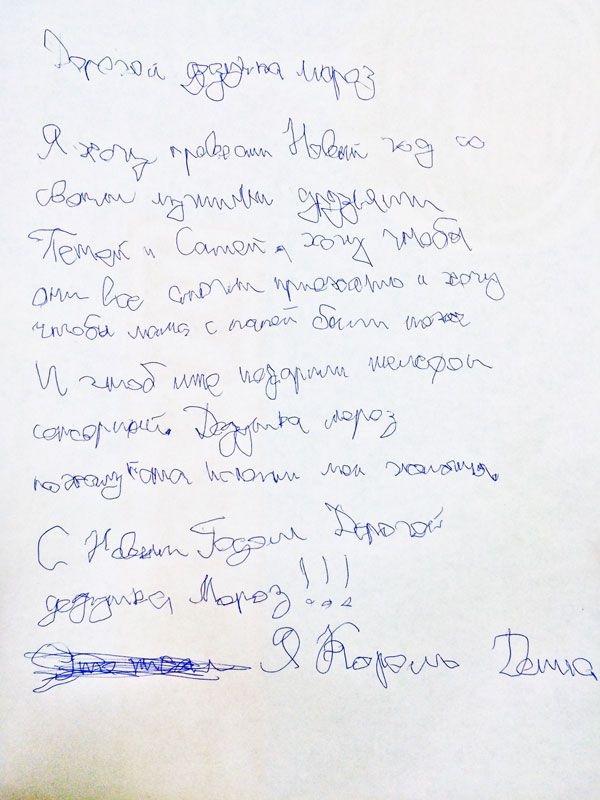 Дорогой дедушка мороз
Я хочу провести Новый год со
своими лучшими друзьями
Темой и Сашей, хочу чтобы
они все смогли приехать и хочу
чтобы мама с папой были тоже
И чтоб мне подарили телефон
сенсорный. Дедушка мороз
пожалуйста исполни мои желания.
С Новым Годом Дорогой
дедушка Мороз!!!
Я Король Дима